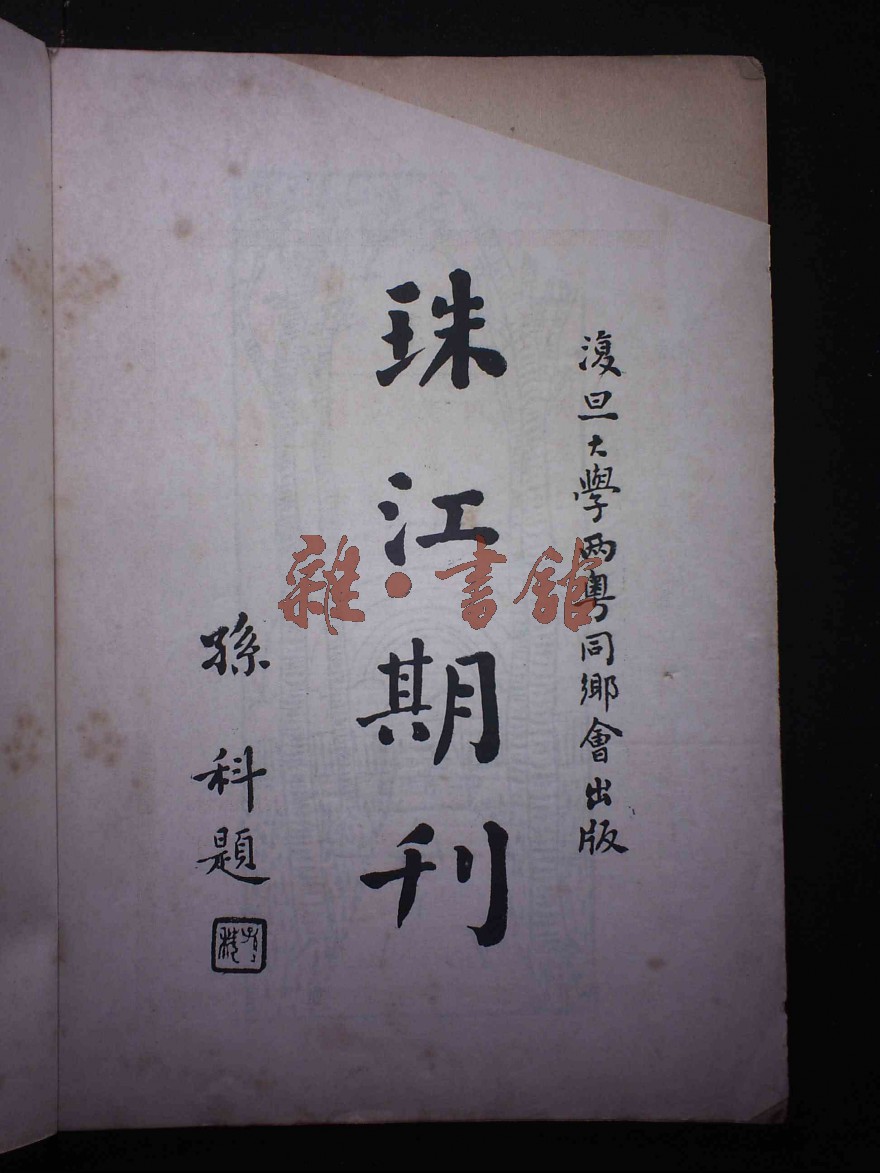 復旦大學两粤同鄉會出版
珠江期刊
孫科題
雜·書館